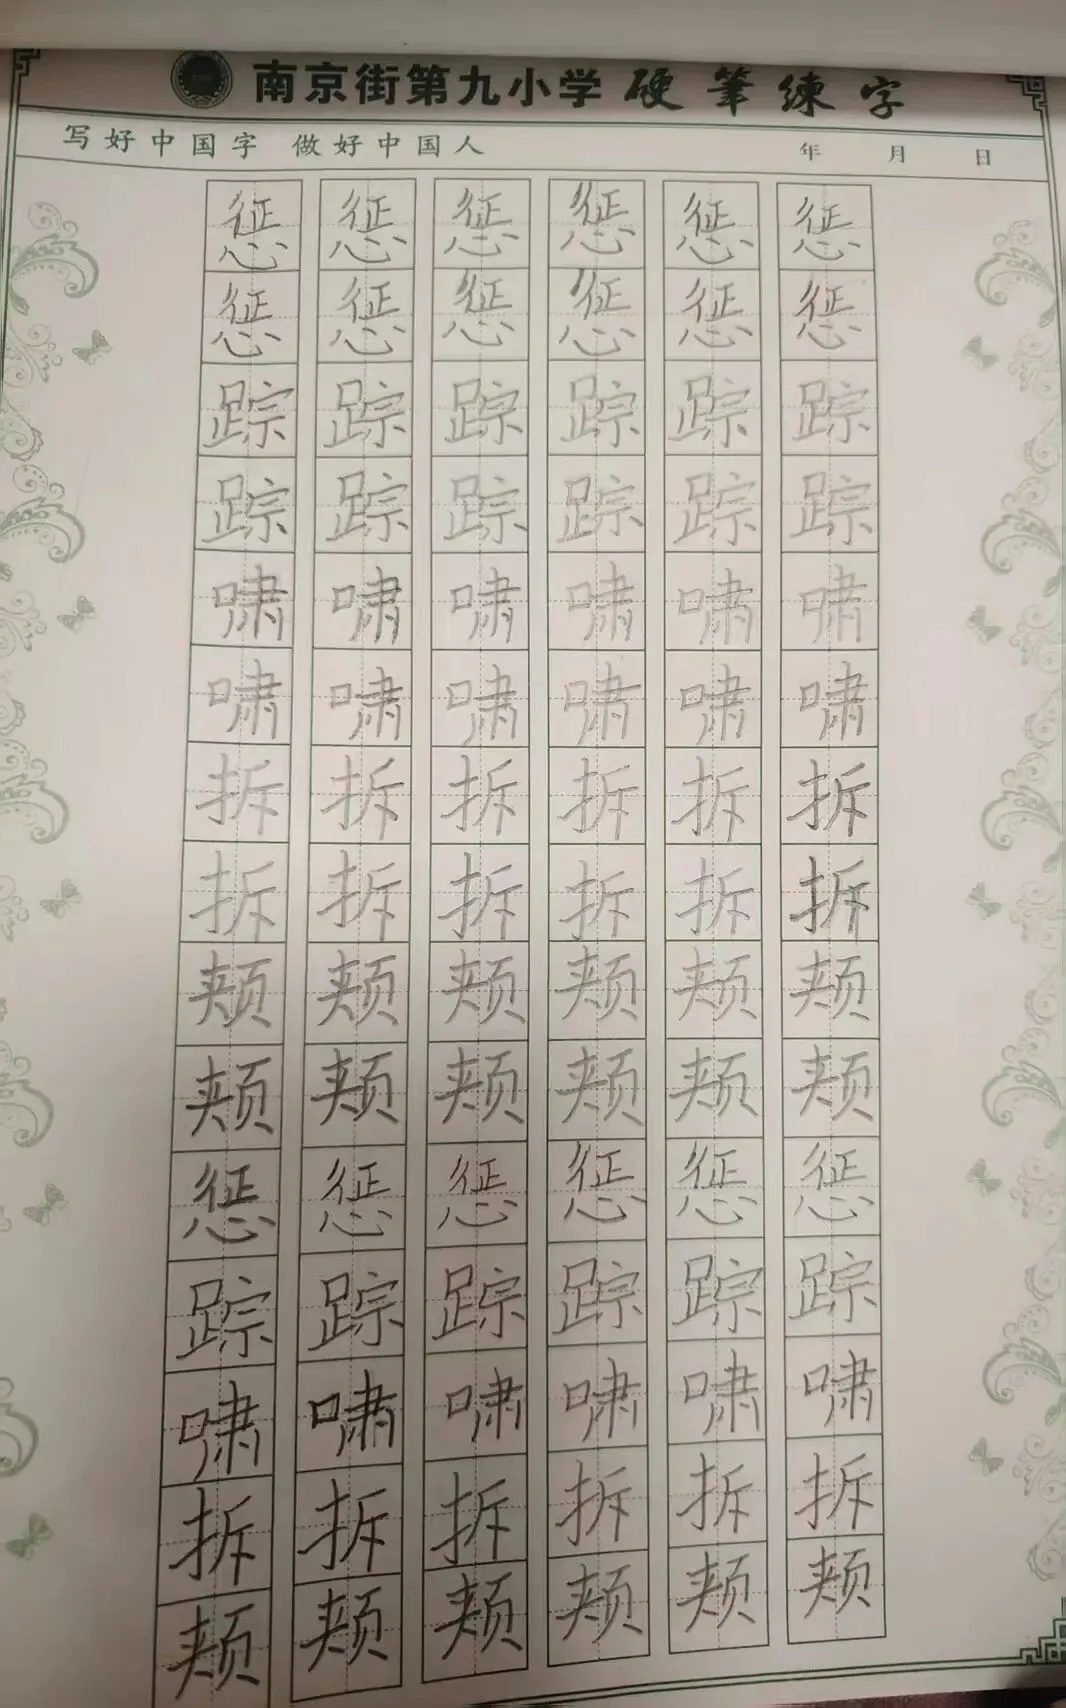 南京街第九小学 硬筆練字
写好中国字 做好中国人 年 月 日
惩 惩 惩 惩 惩 惩
惩 惩 惩 惩 惩 惩
踪 踪 踪 踪 踪 踪
踪 踪 踪 踪 踪 踪
啸 啸 啸 啸 啸 啸
啸 啸 啸 啸 啸 啸
拆 拆 拆 拆 拆 拆
拆 拆 拆 拆 拆 拆
颊 颊 颊 颊 颊 颊
颊 颊 颊 颊 颊 颊
惩 惩 惩 惩 惩 惩
踪 踪 踪 踪 踪 踪
啸 啸 啸 啸 啸 啸
拆 拆 拆 拆 拆 拆
颊 颊 颊 颊 颊 颊